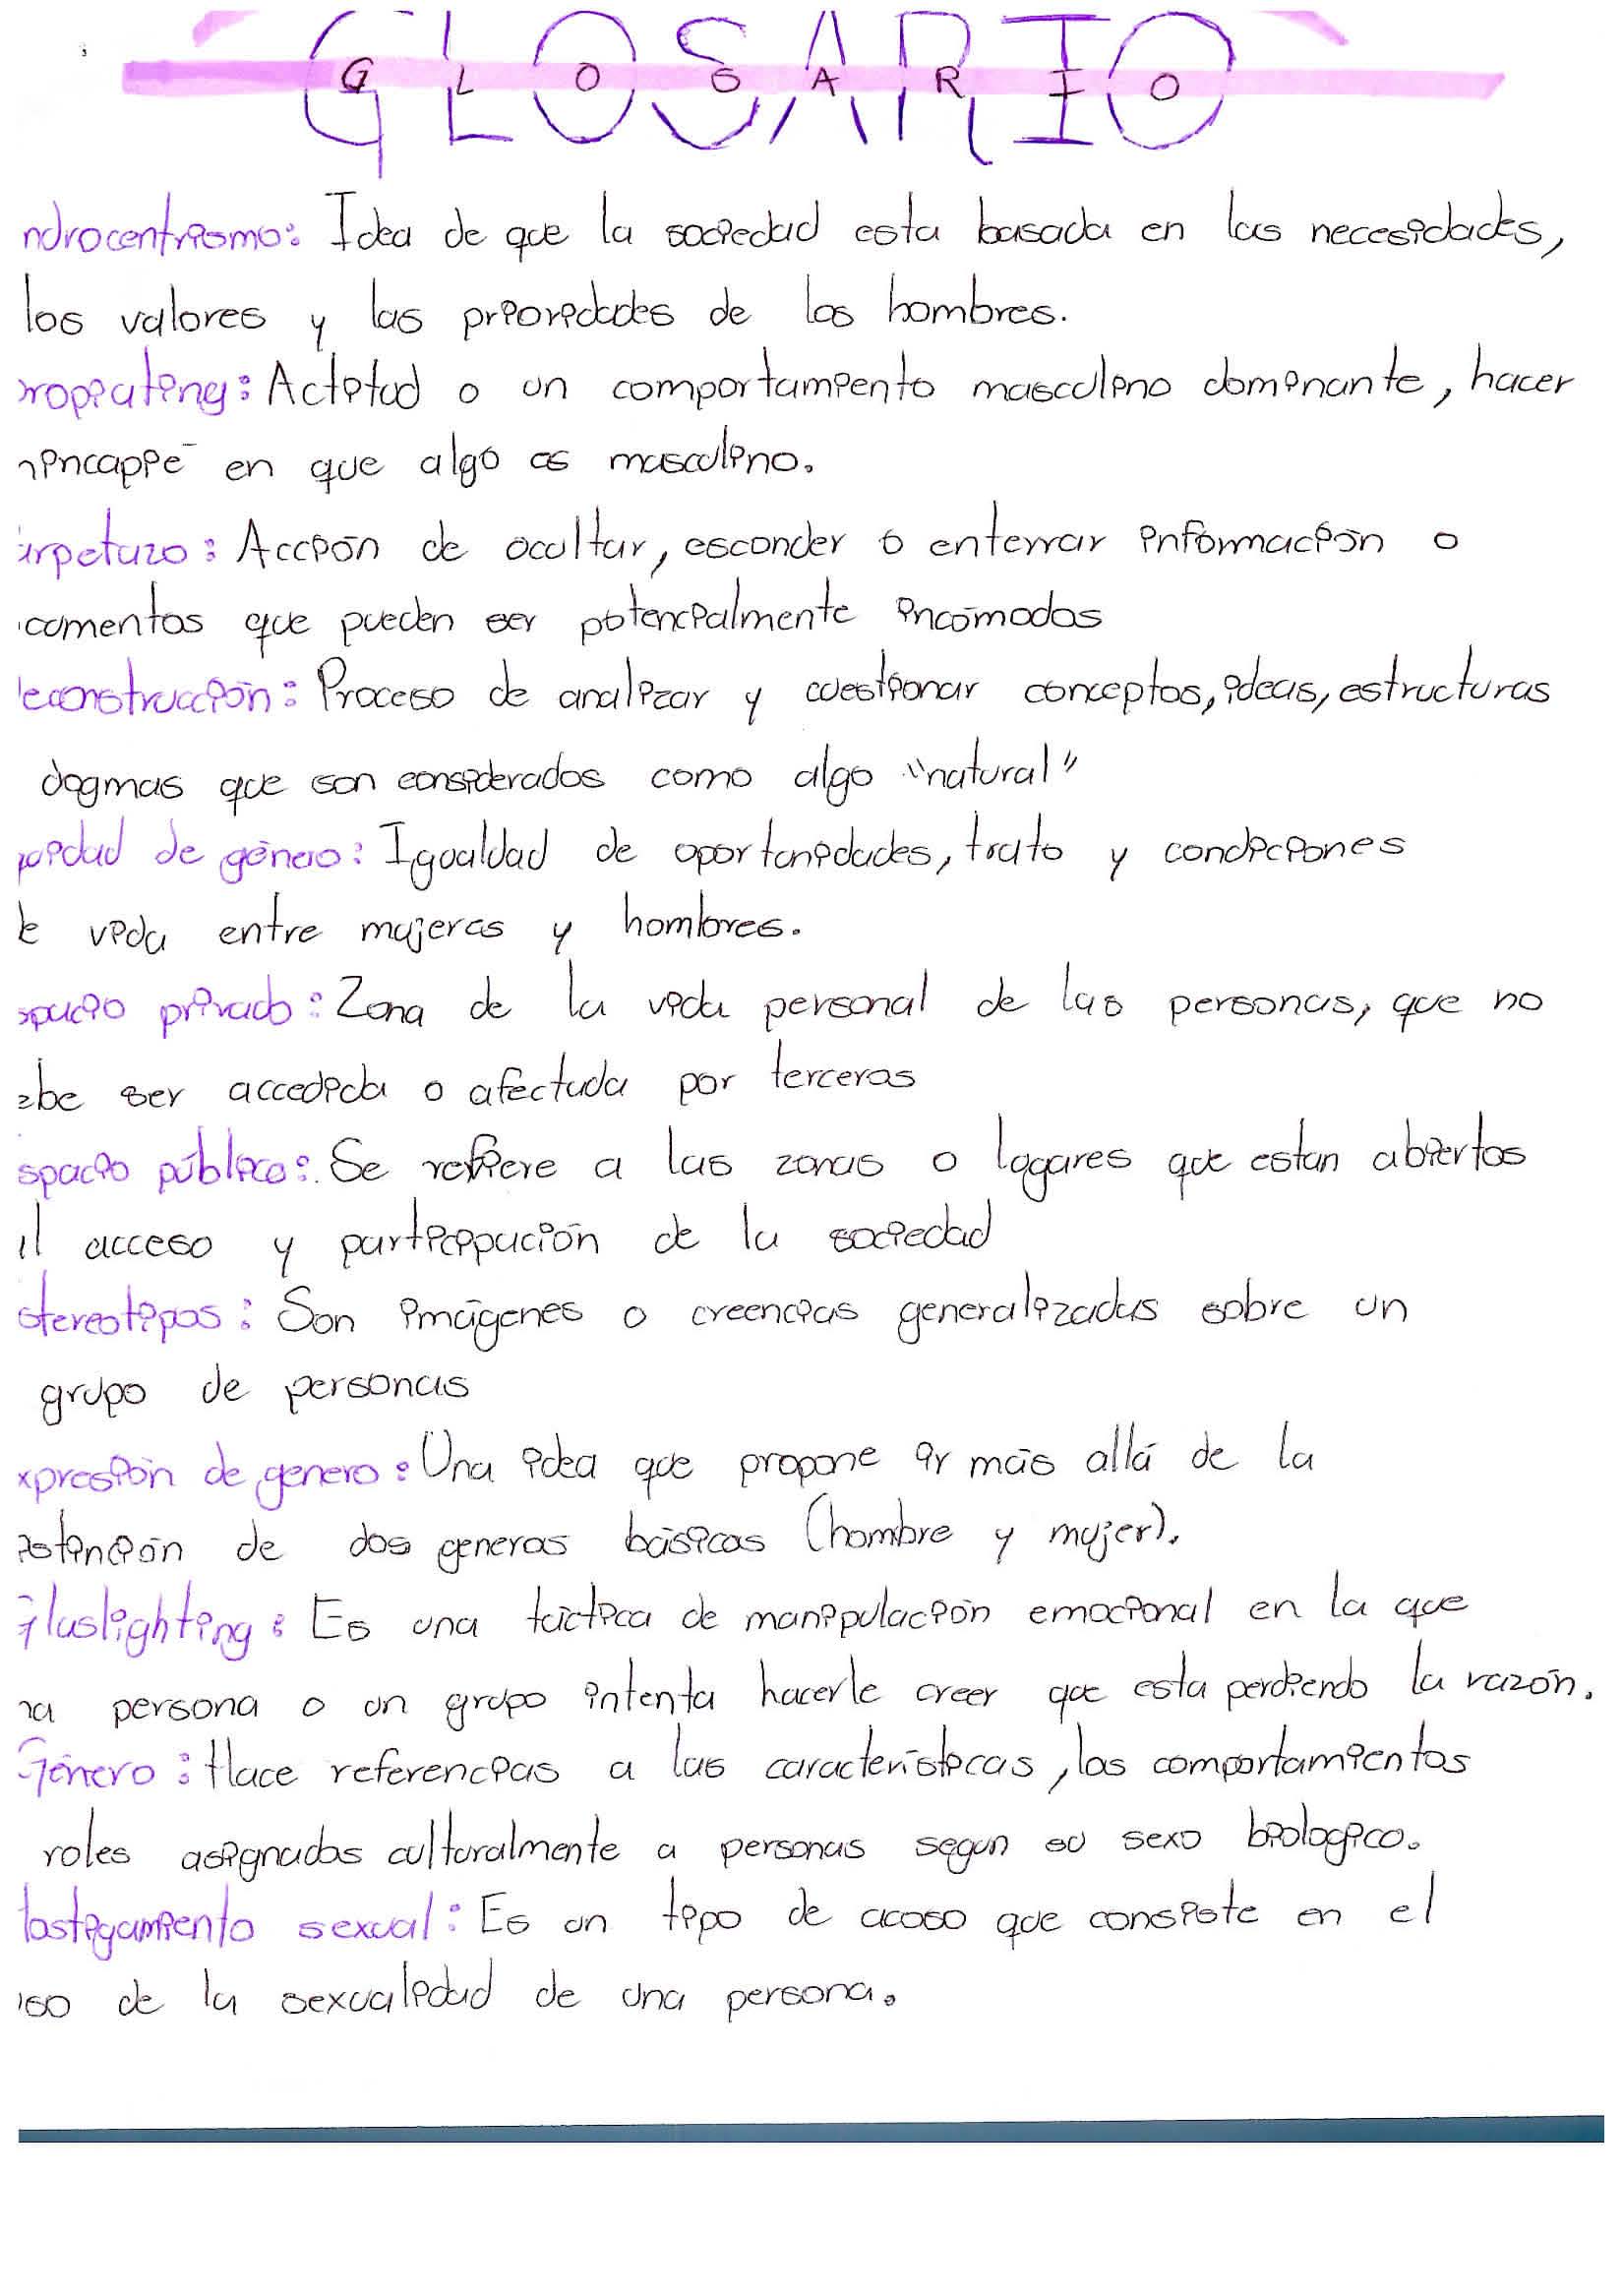 GLOSARIO
G L O S A R I O
ndrocentrismo: Idea de que la sociedad esta basada en las necesidades,
los valores y las prioridades de los hombres.
ropiating: Actitud o un comportamiento masculino dominante, hacer
hincapie en que algo es masculino.
arpetazo: Acción de ocultar, esconder o enterrar información o
cumentos que pueden ser potencialmente incómodos
econstrucción: Proceso de analizar y cuestionar conceptos, ideas, estructuras
dogmas que son considerados como algo "natural"
uidad de género: Igualdad de oportunidades, trato y condiciones
de vida entre mujeres y hombres.
spacio privado: Zona de la vida personal de las personas, que no
ebe ser accedida o afectada por terceros
spacio público: Se refiere a las zonas o lugares que estan abiertos
al acceso y participación de la sociedad
stereotipos: Son imágenes o creencias generalizadas sobre un
grupo de personas
xpresión de genero: Una idea que propone ir más allá de la
istinción de dos generos básicos (hombre y mujer).
Gaslighting: Es una táctica de manipulación emocional en la que
na persona o un grupo intenta hacerle creer que esta perdiendo la razón.
Género: Hace referencias a las características, los comportamientos
roles asignados culturalmente a personas segun su sexo biologico.
Hostigamiento sexual: Es un tipo de acoso que consiste en el
uso de la sexualidad de una persona.